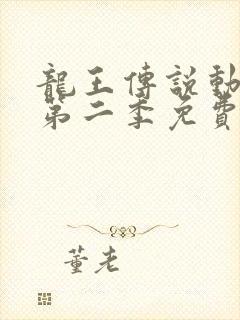 龍王傳說動
第二季免費
董老